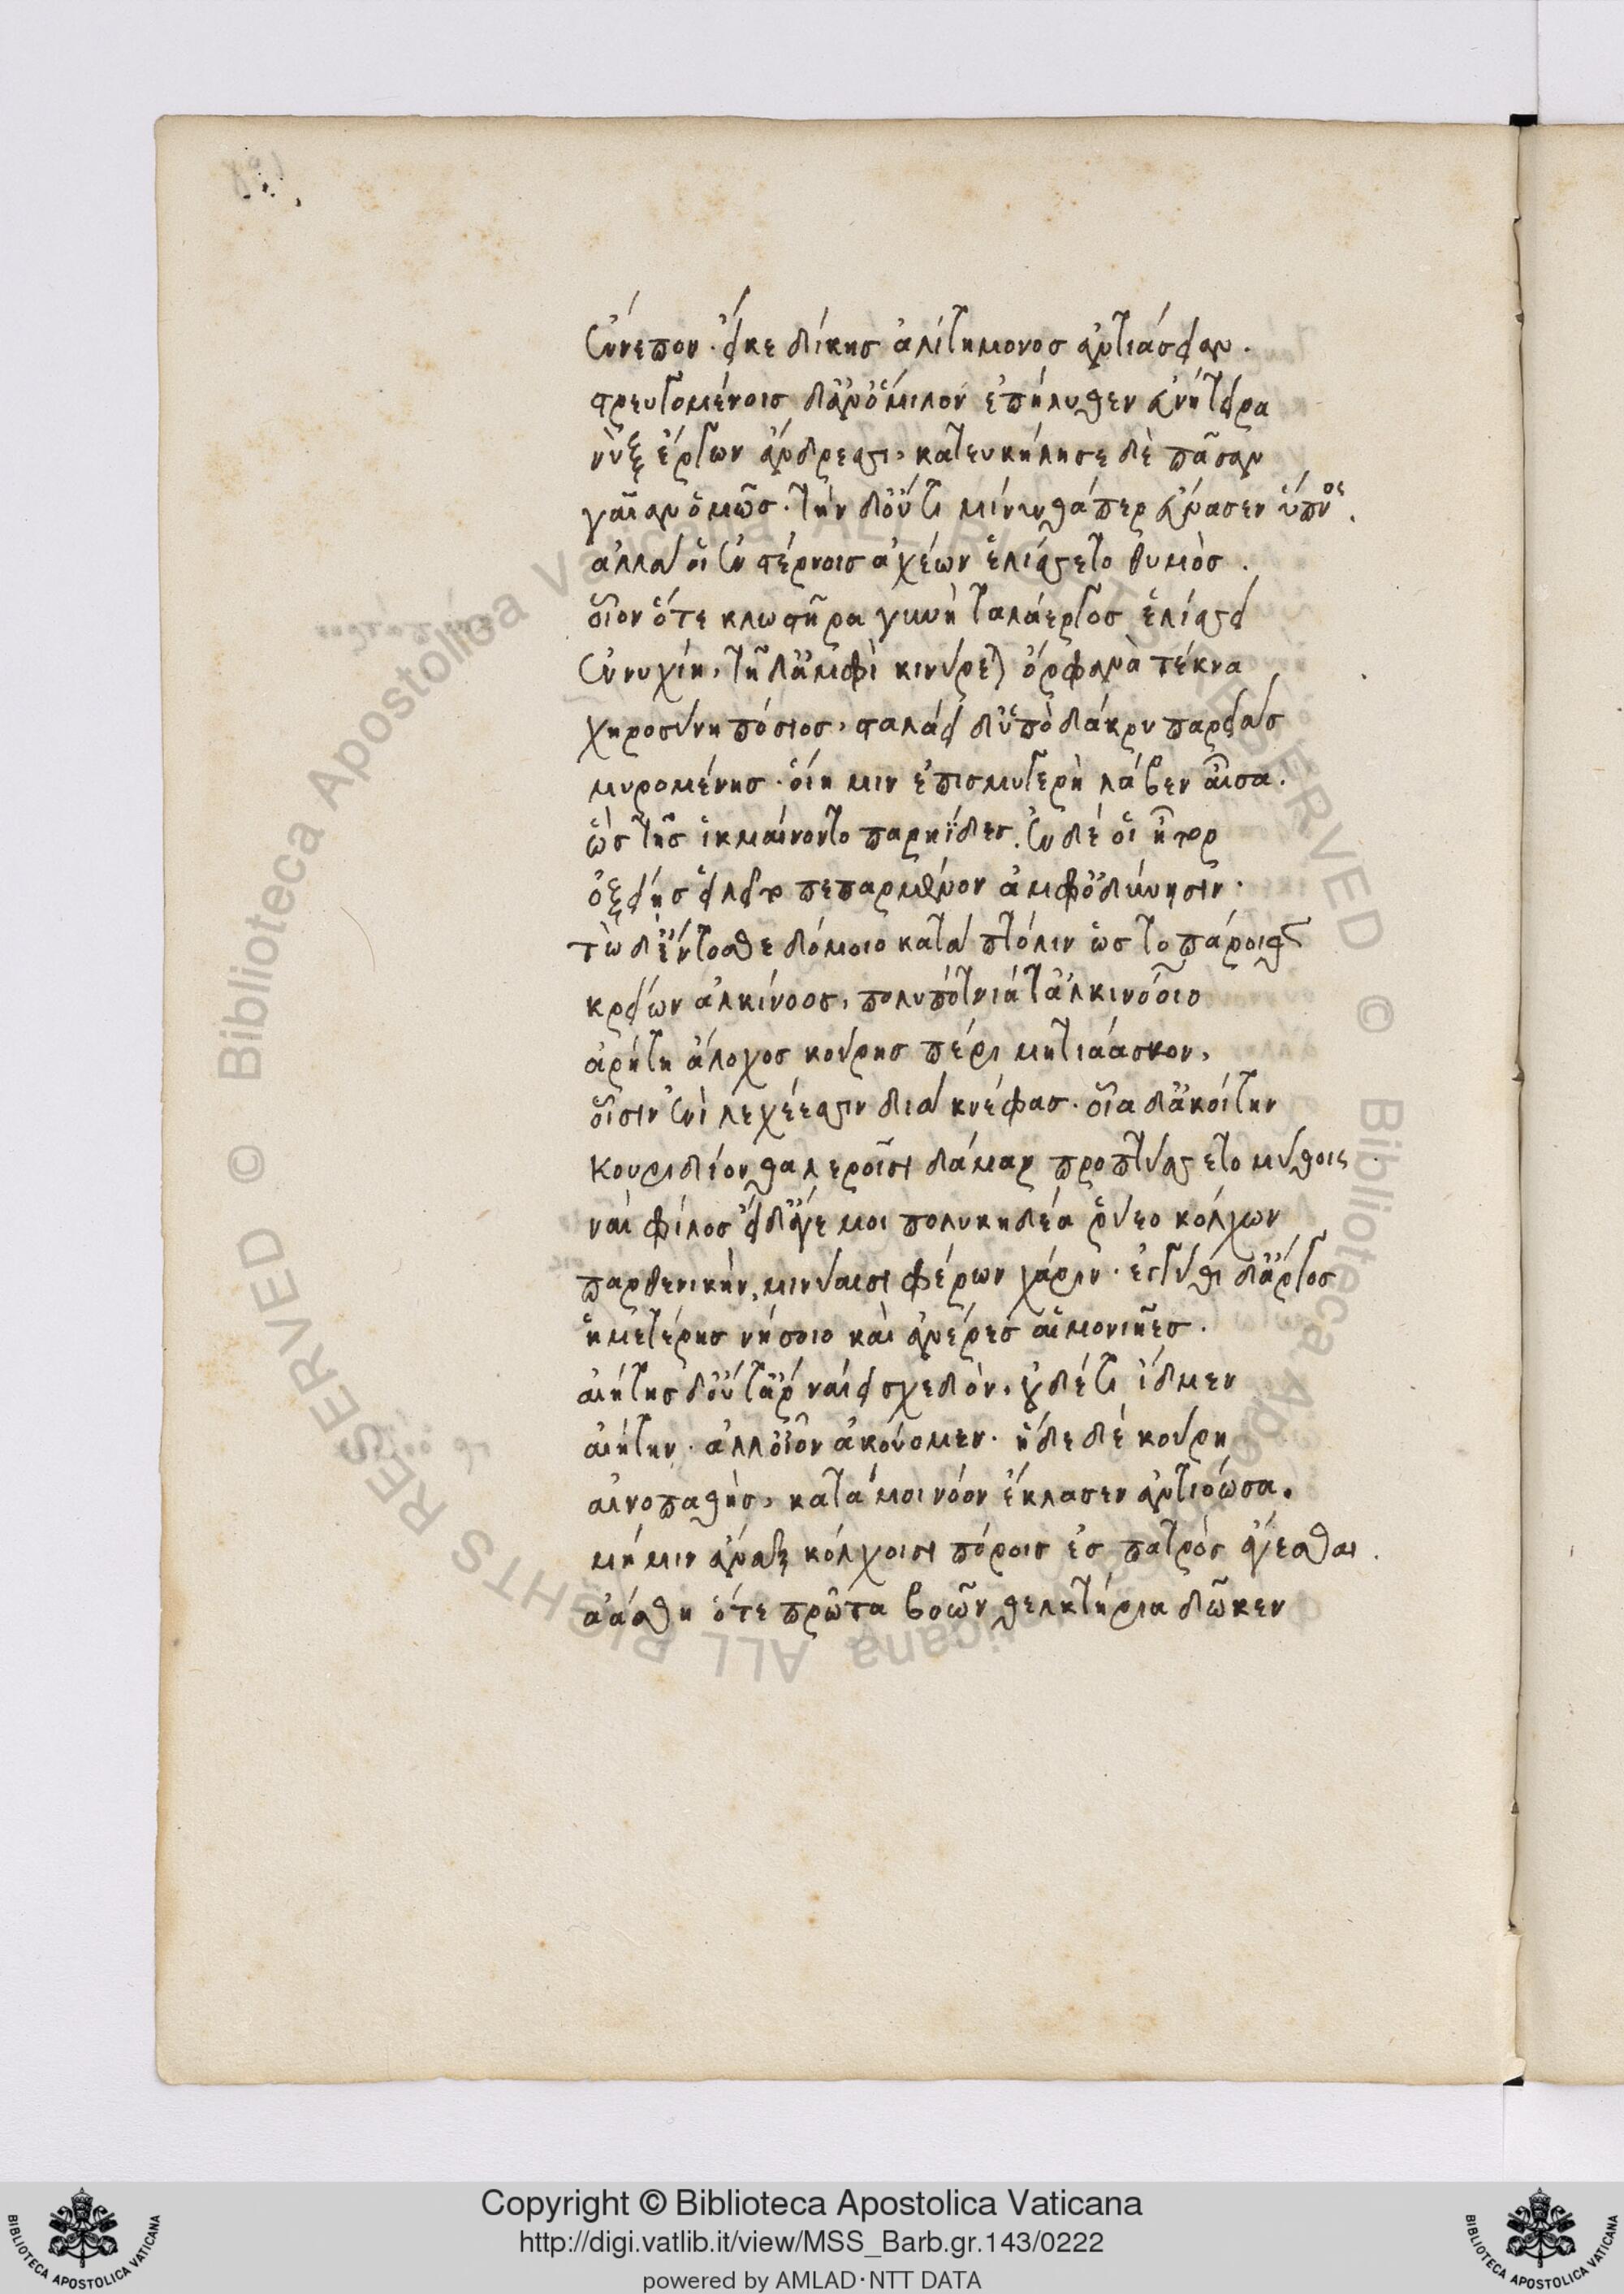 ἔννεπον. εἴ κε δίκης ἀλιτήμονος ἀντιάσειαν.
στρευγομένοις δ' ἀν' ὅμιλον ἐπήλυθεν εὐνήτειρα
νὺξ ἔργων ἄνδρεσσι, κατευκήλησε δὲ πᾶσαν
γαῖαν ὁμῶς. τὴν δ' οὔτι μίνυνθά περ εὔνασεν ὕπνος.
ἀλλά οἱ ἐν στέρνοις ἀχέων εἱλίσσετο θυμὸς.
οἷον ὅτε κλωστῆρα γυνὴ ταλάεργος ἑλίσσει
ἐννυχίη, τῇ δ' ἀμφὶ κινύρεται ὀρφανὰ τέκνα
χηροσύνη πόσιος, σταλάει δ' ὑπὸ δάκρυ παρειὰς
μυρομένης. οἵη μιν ἐπισμυγερὴ λάβεν αἶσα.
ὣς τῆς ἰκμαίνοντο παρηΐδες. ἐν δέ οἱ ἦτορ
ὀξείης εἰλεῖτο πεπαρμένον ἀμφ' ὀδύνησιν.
τὼ δ' ἔντοσθε δόμοιο κατὰ πτόλιν ὡς τὸ πάροιθεν
κρείων ἀλκίνοος, πολυπότνιά τ' ἀλκινόοιο
ἀρήτη ἄλοχος κούρης πέρι μητιάασκον,
οἷσιν ἐνὶ λεχέεσσιν διὰ κνέφας. οἷα δ' ἀκοίτην
κουρίδιον θαλεροῖσι δάμαρ προπτύσσετο μύθοις.
ναὶ φίλος εἰ δ' ἄγε μοι πολυκηδέα ῥύεο κόλχων
παρθενικὴν, μινύαισι φέρων χάριν. ἐγγύθι δ' ἄργος
ἡμετέρης νήσοιο καὶ ἀνέρες αἱμονιῆες.
αἰήτης δ' οὔτ' ἂρ ναίει σχεδὸν, οὐδέ τι ἴδμεν
αἰήτην. ἀλλ' οἷον ἀκούομεν. ἥδε δὲ κούρη
αἰνοπαθὴς, κατά μοι νόον ἔκλασεν ἀντιόωσα.
μή μιν ἄναξ κόλχοισι πόροις ἐς πατρὸς ἄγεσθαι.
ἀάσθη ὅτε πρῶτα βοῶν θελκτήρια δῶκεν
Copyright © Biblioteca Apostolica Vaticana
http://digi.vatlib.it/view/MSS_Barb.gr.143/0222
powered by AMLAD·NTT DATA